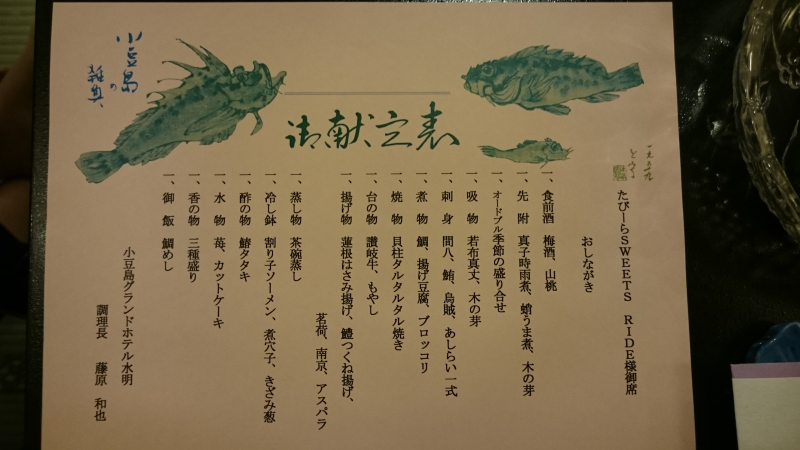 小豆島
の
雑魚
御献立表
たびーらSWEETS RIDE様御席
おしながき
一、食前酒 梅酒、山桃
一、先 附 真子時雨煮、蛸うま煮、木の芽
一、オードブル季節の盛り合せ
一、吸 物 若布真丈、木の芽
一、刺 身 間八、鮪、烏賊、あしらい一式
一、煮 物 鯛、揚げ豆腐、ブロッコリ
一、焼 物 貝柱タルタルタル焼き
一、台の物 讃岐牛、もやし
一、揚げ物 蓮根はさみ揚げ、鱧つくね揚げ、
茗荷、南京、アスパラ
一、蒸し物 茶碗蒸し
一、冷し鉢 割り子ソーメン、煮穴子、きざみ葱
一、酢の物 鰆タタキ
一、水 物 苺、カットケーキ
一、香の物 三種盛り
一、御 飯 鯛めし
小豆島グランドホテル水明
調理長 藤原 和也